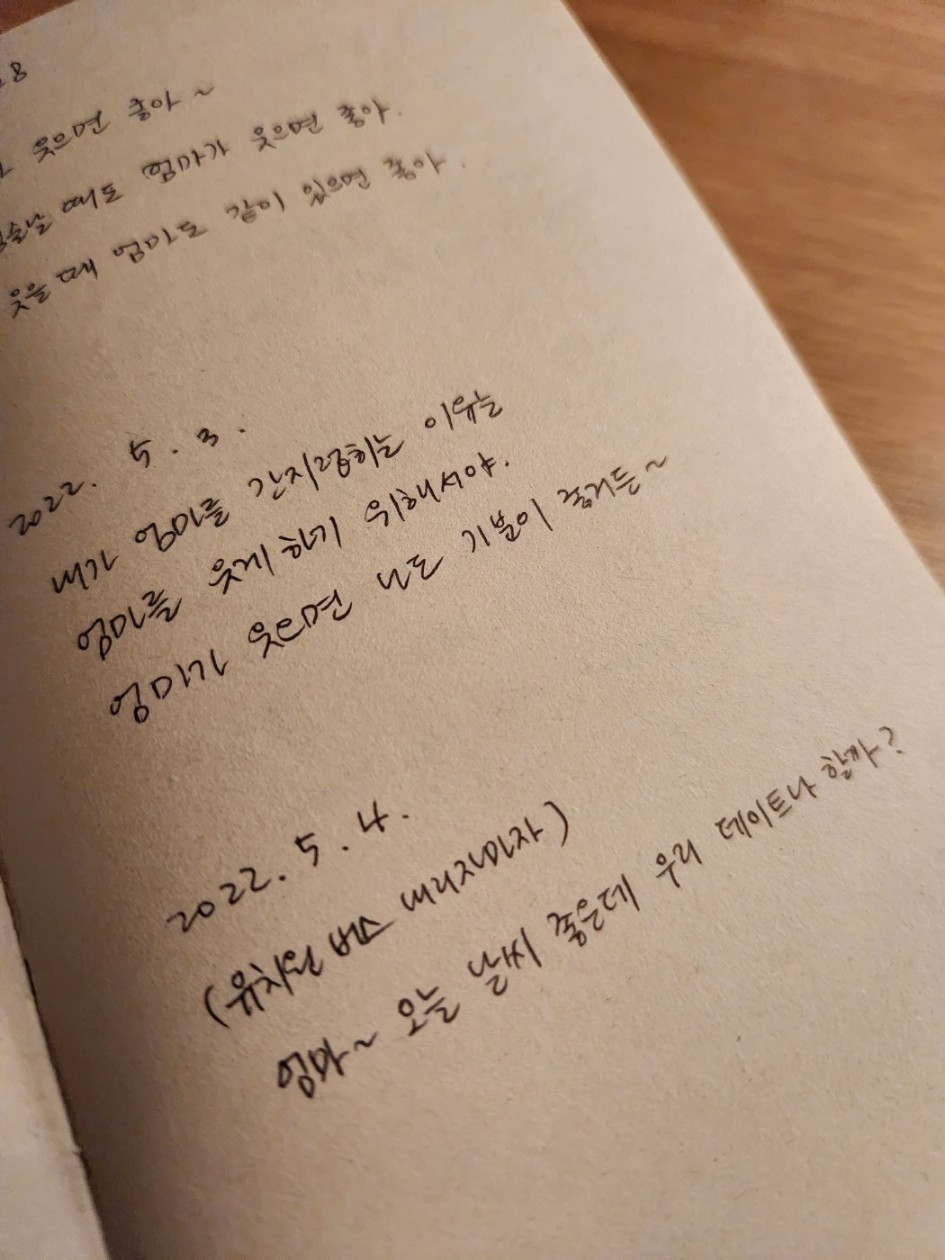 8
웃으면 좋아~
때도 엄마가 웃으면 좋아.
웃을 때 엄마도 같이 있으면 좋아.
2022. 5. 3.
내가 엄마를 간지럽히는 이유는
엄마를 웃게 하기 위해서야.
엄마가 웃으면 나도 기분이 좋거든~
2022. 5. 4.
(유치원 버스 내리자마자)
엄마~ 오늘 날씨 좋은데 우리 데이트나 할까?